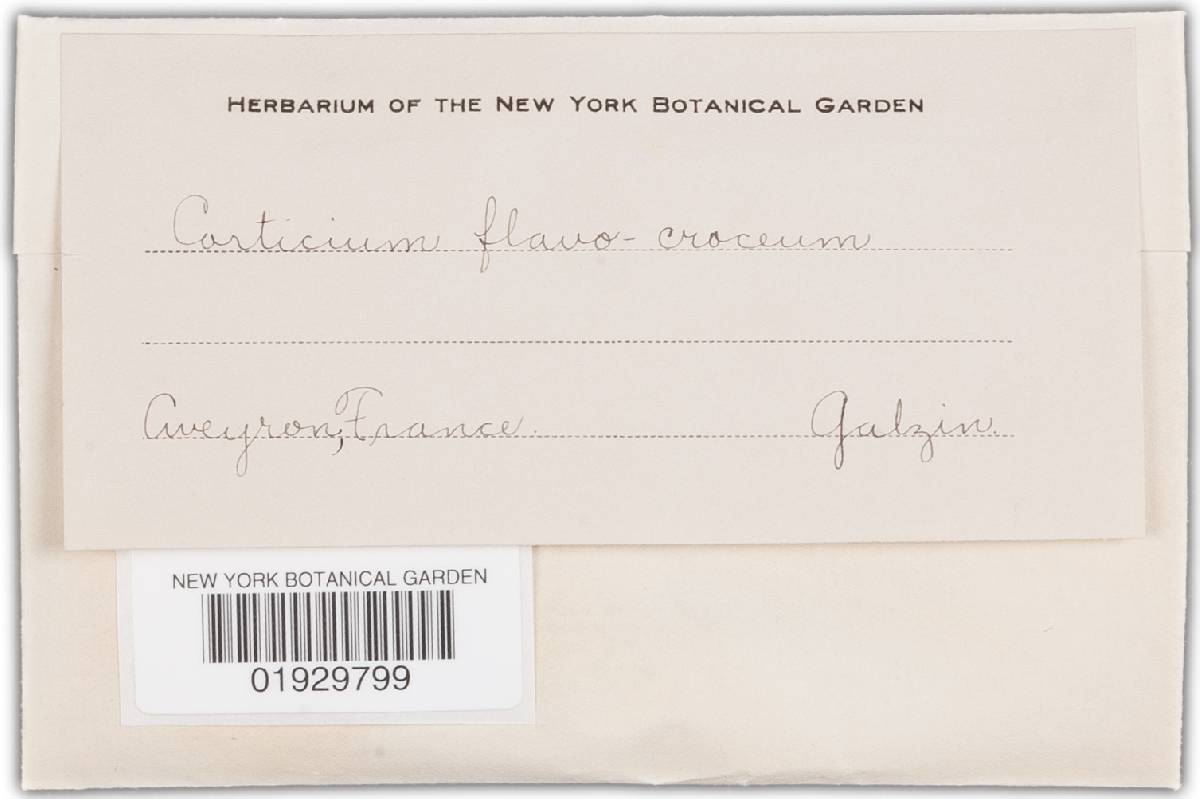 HERBARIUM OF THE NEW YORK BOTANICAL GARDEN
Corticium flavo-croceum
Aveyron, France. Galzin.
NEW YORK BOTANICAL GARDEN
01929799